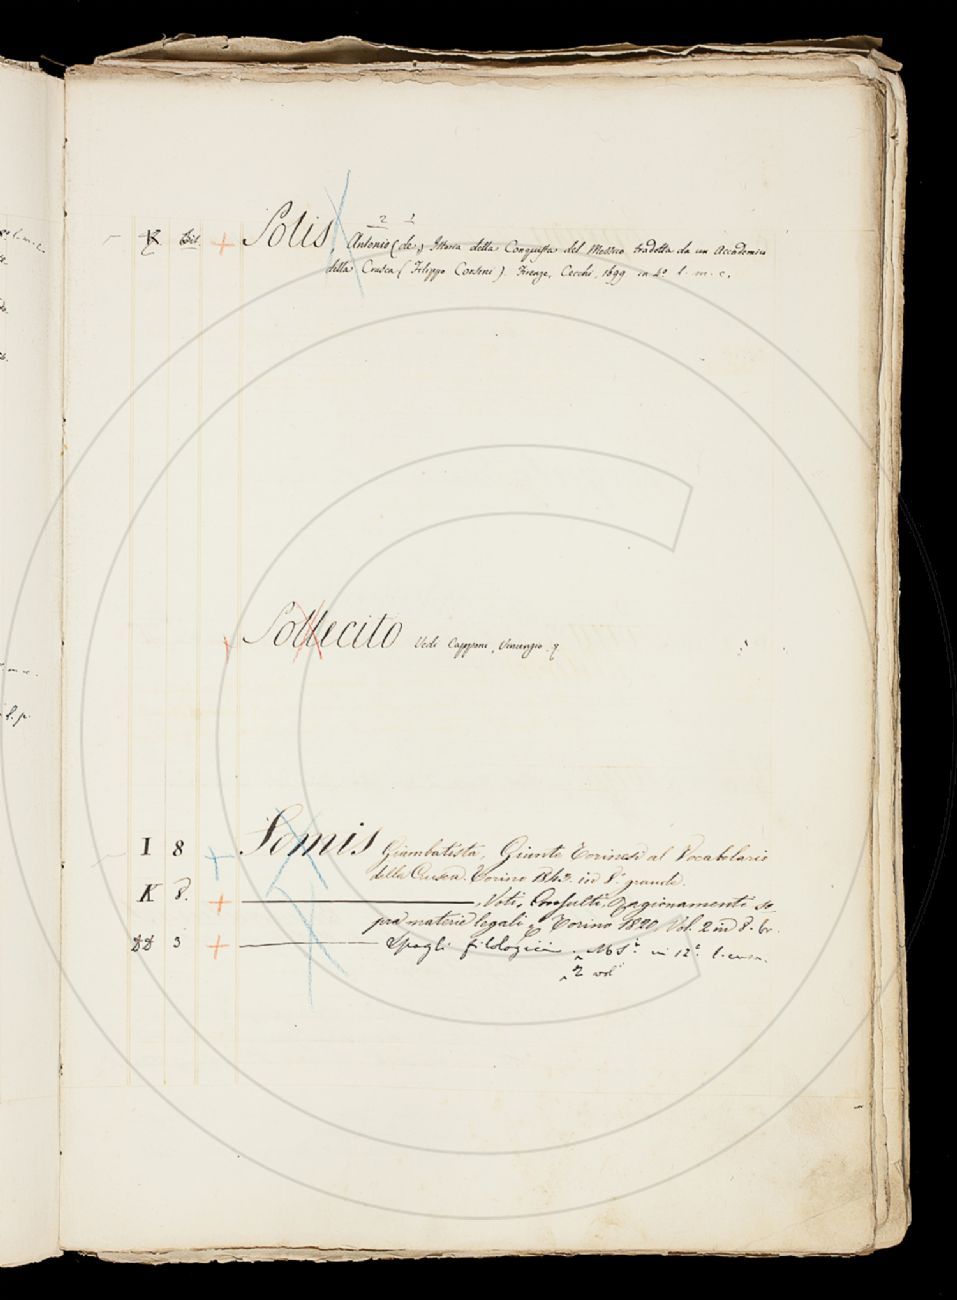 2 1
Solis Antonio (de) Istoria della Conquista del Messico tradotta da un Accademico
della Crusca (Filippo Corsini). Firenze, Cecchi, 1699 in 4º l. m. c.
Sollecito Vedi Capponi, Vincenzo.
I 8 Somis Giambatista, Giunte Torinesi al Vocabolario
della Crusca. Torino 1843. in 8º grande.
K 8. ———, Voti, Consulti, Ragionamenti so
pra materie legali, Torino 1820, Vol. 2 in 8. br.
DD 3 ——— Spogli filologici, MSS. in 12º
2 vol